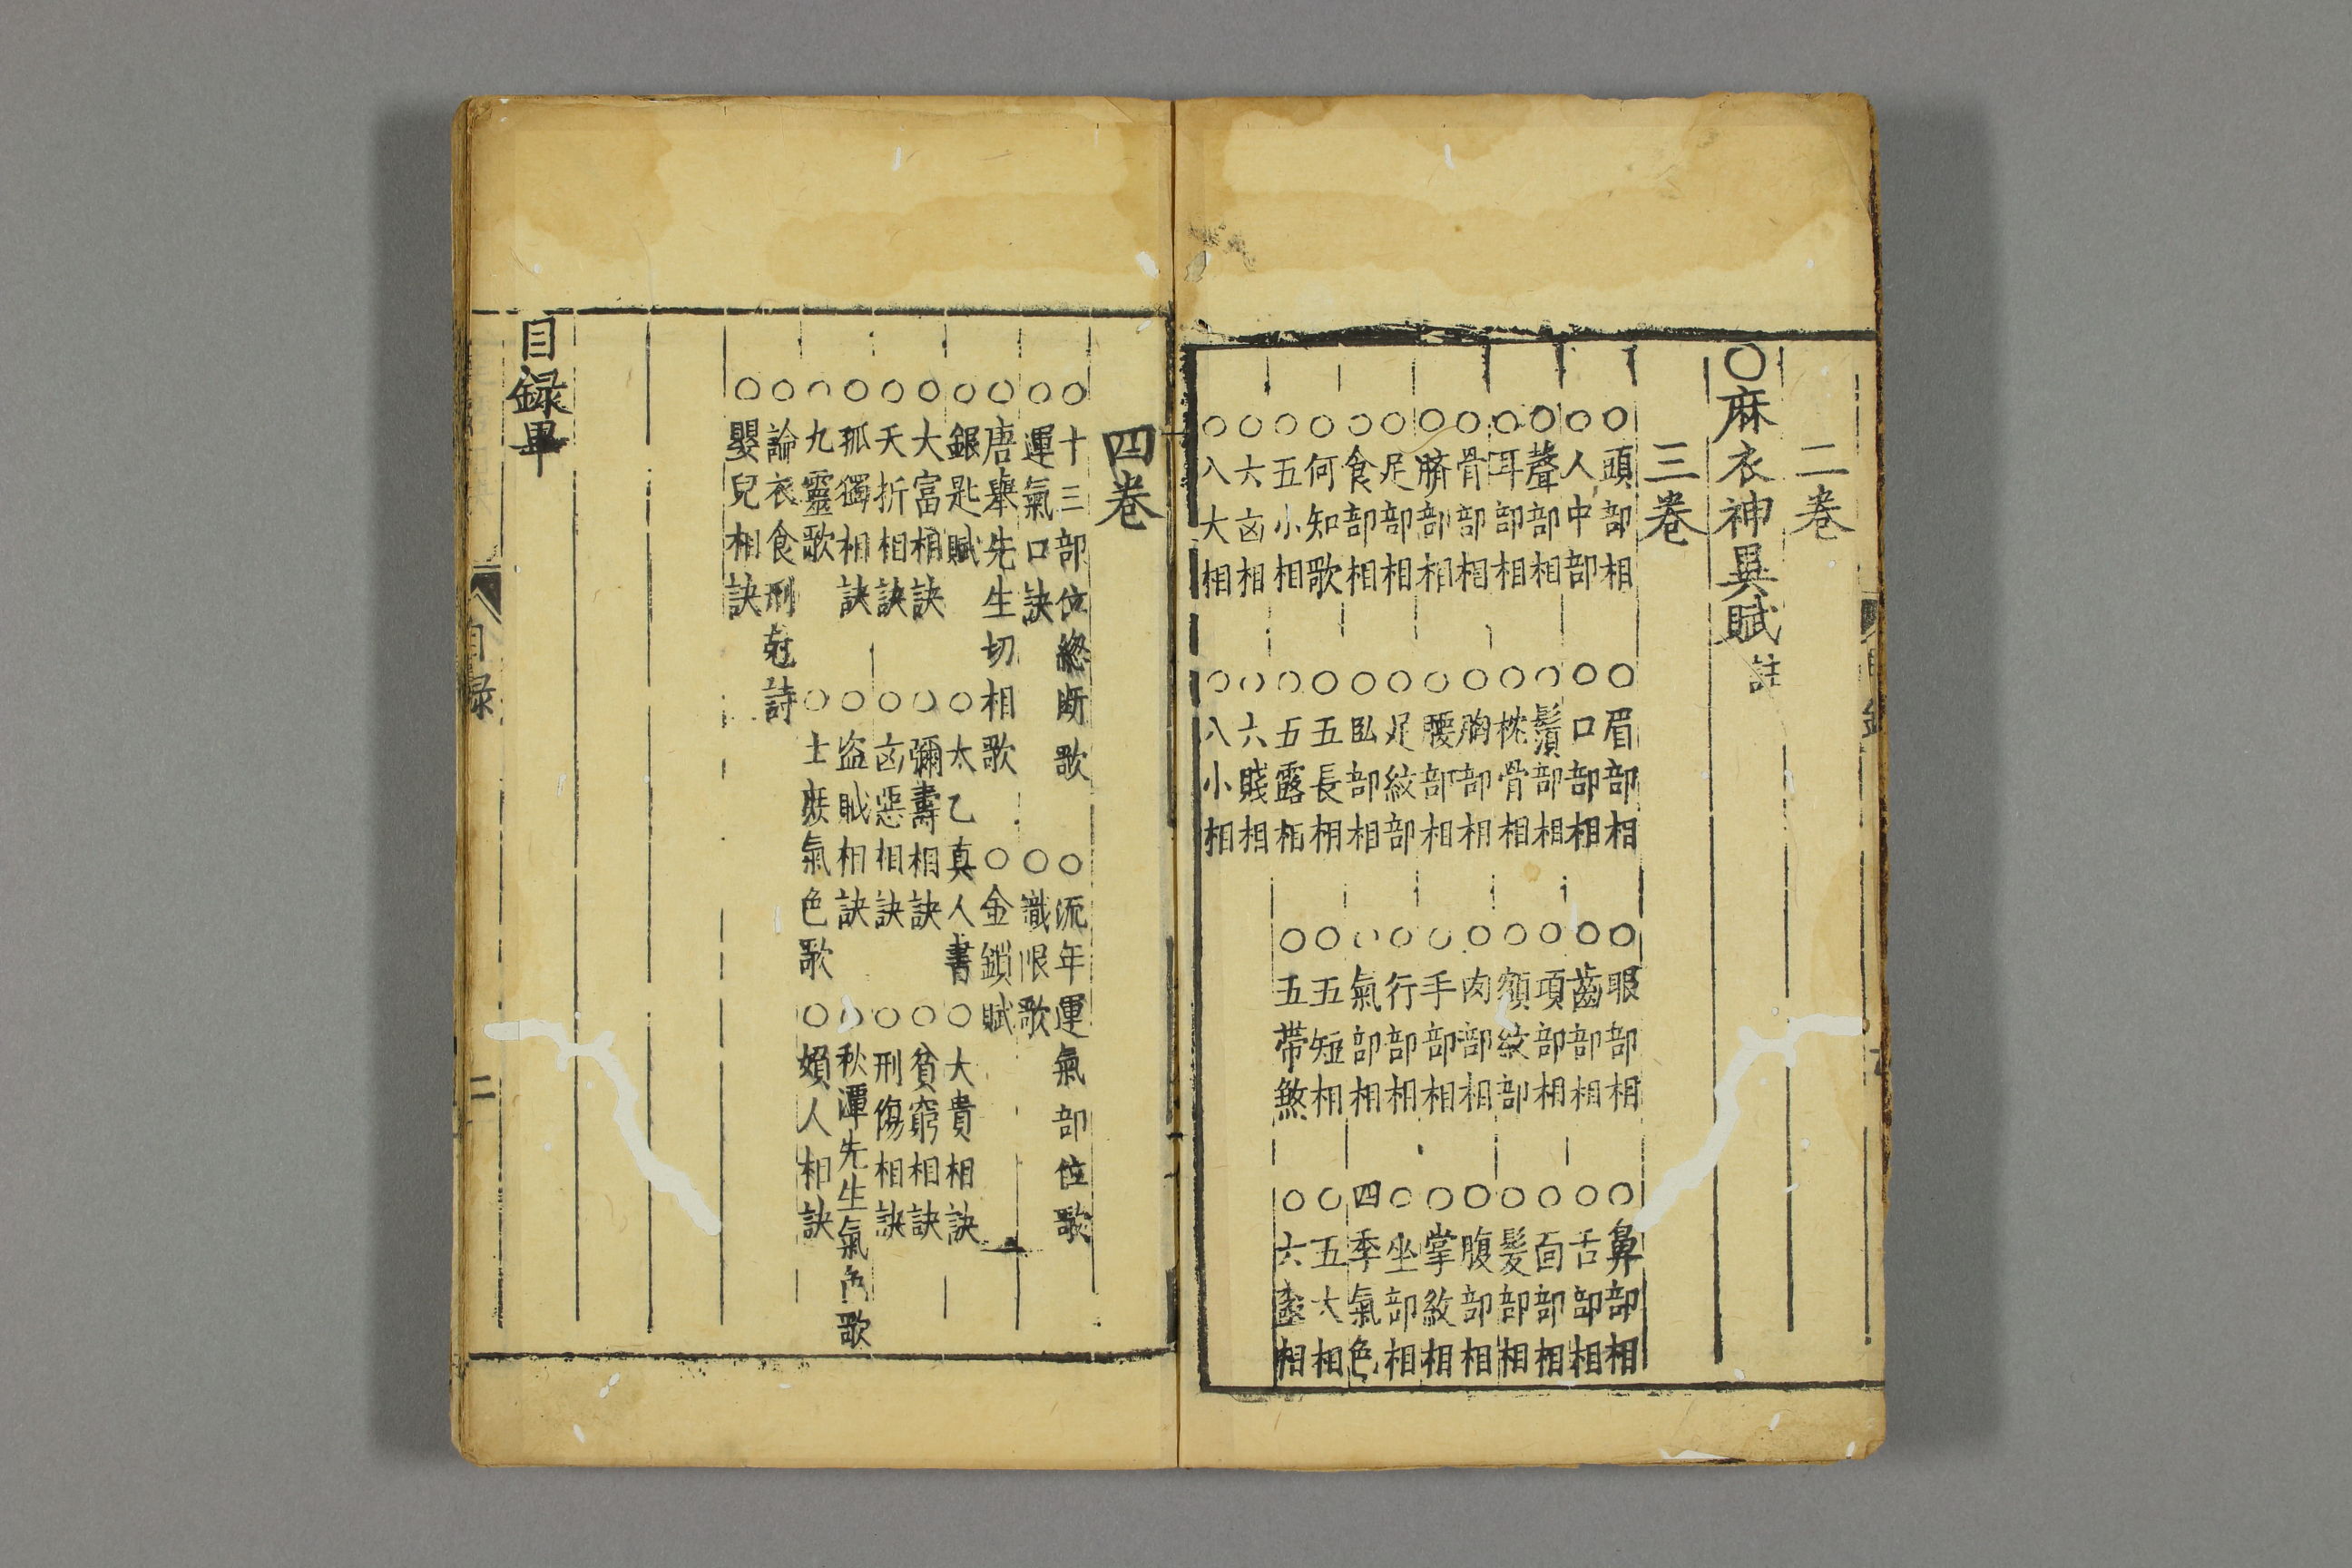 二卷
○麻衣神異賦註
三卷
○頭部相 ○眉部相 ○眼部相 ○鼻部相
○人中部 ○口部相 ○齒部相 ○舌部相
○聲部相 ○鬚部相 ○項部相 ○面部相
○耳部相 ○枕骨相 ○額紋部 ○髮部相
○骨部相 ○胸部相 ○肉部相 ○腹部相
○臍部相 ○腰部相 ○手部相 ○掌紋相
○足部相 ○足紋部 ○行部相 ○坐部相
○食部相 ○臥部相 ○氣部相 四季氣色
○何知歌 ○五長相 ○五短相 ○五大相
○五小相 ○五露相 ○五帶煞 ○六相
○六凶相 ○六賤相
○八大相 ○八小相
四卷
○十三部位緫断歌 ○流年運氣部位歌
○運氣口訣 ○識限歌
○唐舉先生切相歌 ○金鎖賦
○銀匙賦 ○太乙真人書 ○大貴相訣
○大富相訣 ○彌壽相訣 ○貧窮相訣
○夭折相訣 ○凶惡相訣 ○刑傷相訣
○孤獨相訣 ○盗賊相訣 ○秋潭先生氣色歌
○九靈歌 ○士庻氣色歌 ○婦人相訣
○論衣食刑尅詩
○嬰兒相訣
目録畢
目録
二